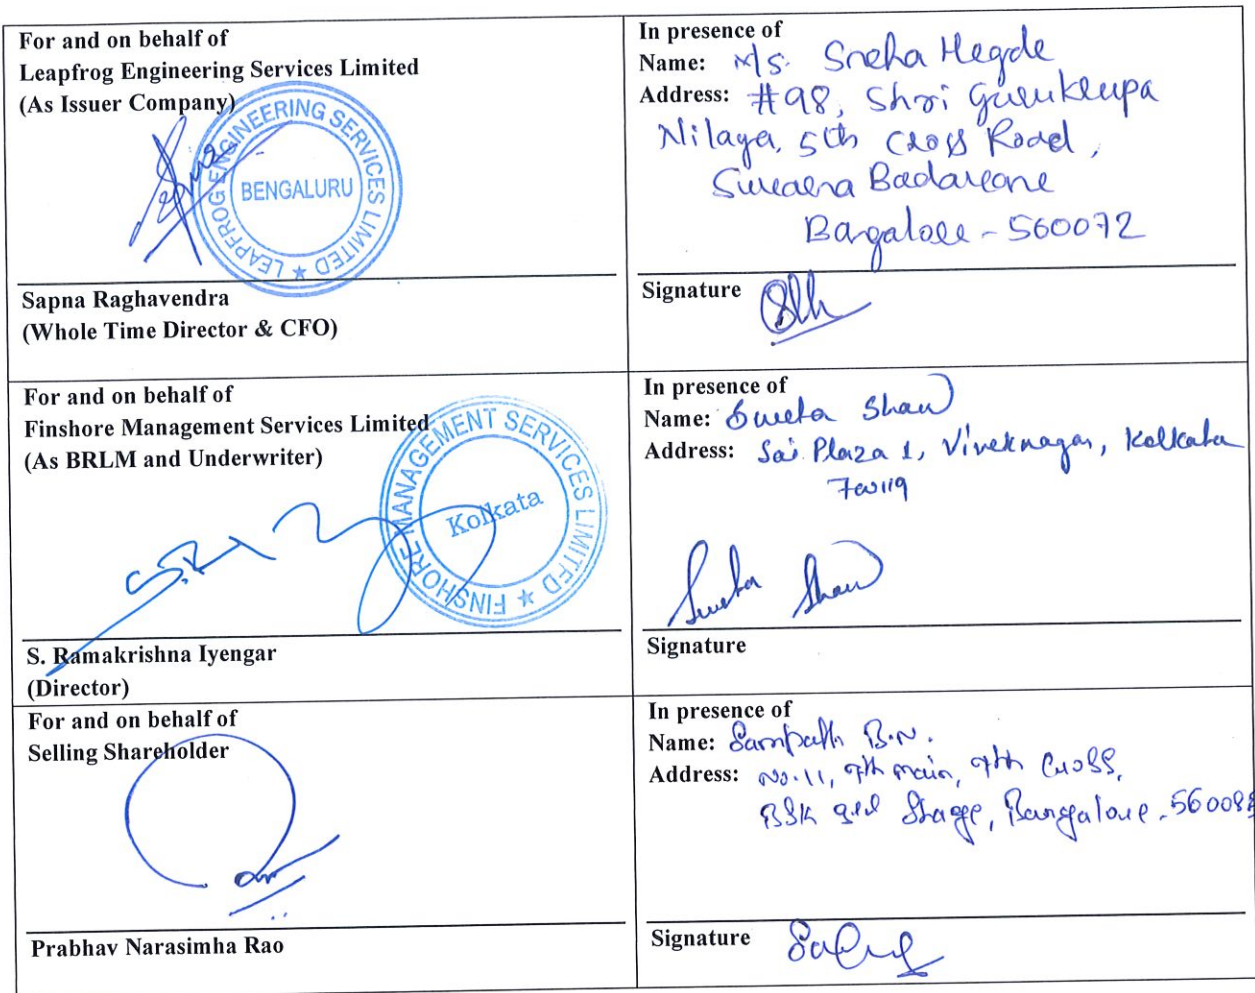 For and on behalf of
Leapfrog Engineering Services Limited
(As Issuer Company)
LEAPFROG ENGINEERING SERVICES LIMITED ★
BENGALURU
Sapna Raghavendra
(Whole Time Director & CFO)
In presence of
Name: M/s. Sneha Hegde
Address: #98, Shri Gurukrupa
Nilaya, 5th Cross Road,
Bangalore - 560072
Signature
For and on behalf of
Finshore Management Services Limited
(As BRLM and Underwriter)
FINSHORE MANAGEMENT SERVICES LIMITED ★
Kolkata
S. Ramakrishna Iyengar
(Director)
In presence of
Name: Sweta Shaw
Address: Sai Plaza 1, Viveknagar, Kolkata
Sweta Shaw
Signature
For and on behalf of
Selling Shareholder
Prabhav Narasimha Rao
In presence of
Name: Sampath B.N.
Address: No. 11, 9th main, 9th Cross,
BSK Stage, Bangalore -
Signature